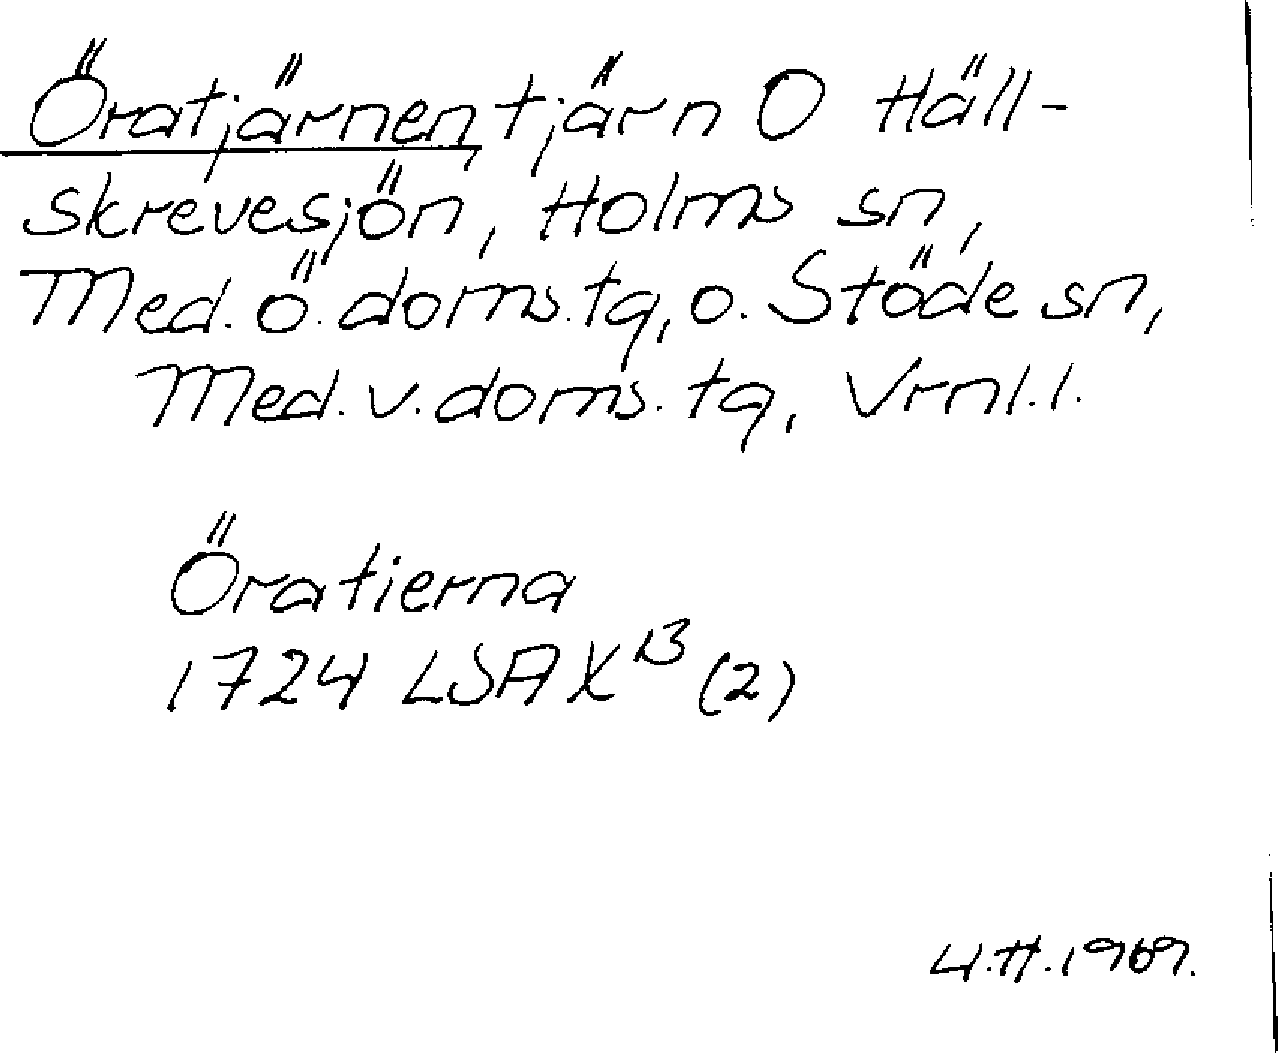 Öratjärnen, tjärn O Häll-
skrevesjön, Holms sn,
Med. ö. doms. tg, o. Stöde sn,
Med. v. doms. tg, Vrnl. l.
Öratierna
1724 LSA X¹³ (2)
U.H. 1969.